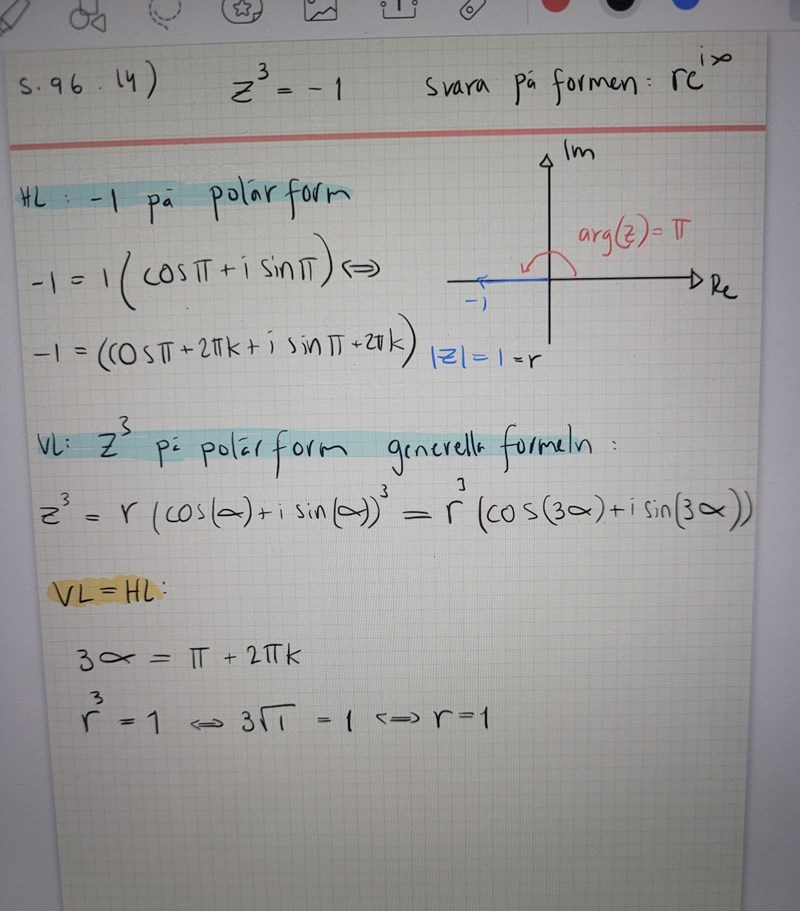 s. 96. 14) z³ = -1 svara på formen: re^(iα)
Im
HL: -1 på polär form
arg(z) = π
-1 = 1(cosπ + i sinπ) ⇔
Re
-1
-1 = (cosπ+2πk + i sinπ+2πk)
|z| = 1 = r
VL: z³ på polär form generella formeln:
z³ = r (cos(α) + i sin(α))³ = r³ (cos(3α) + i sin(3α))
VL = HL:
3α = π + 2πk
r³ = 1 ⇔ 3√1 = 1 ⇔ r = 1